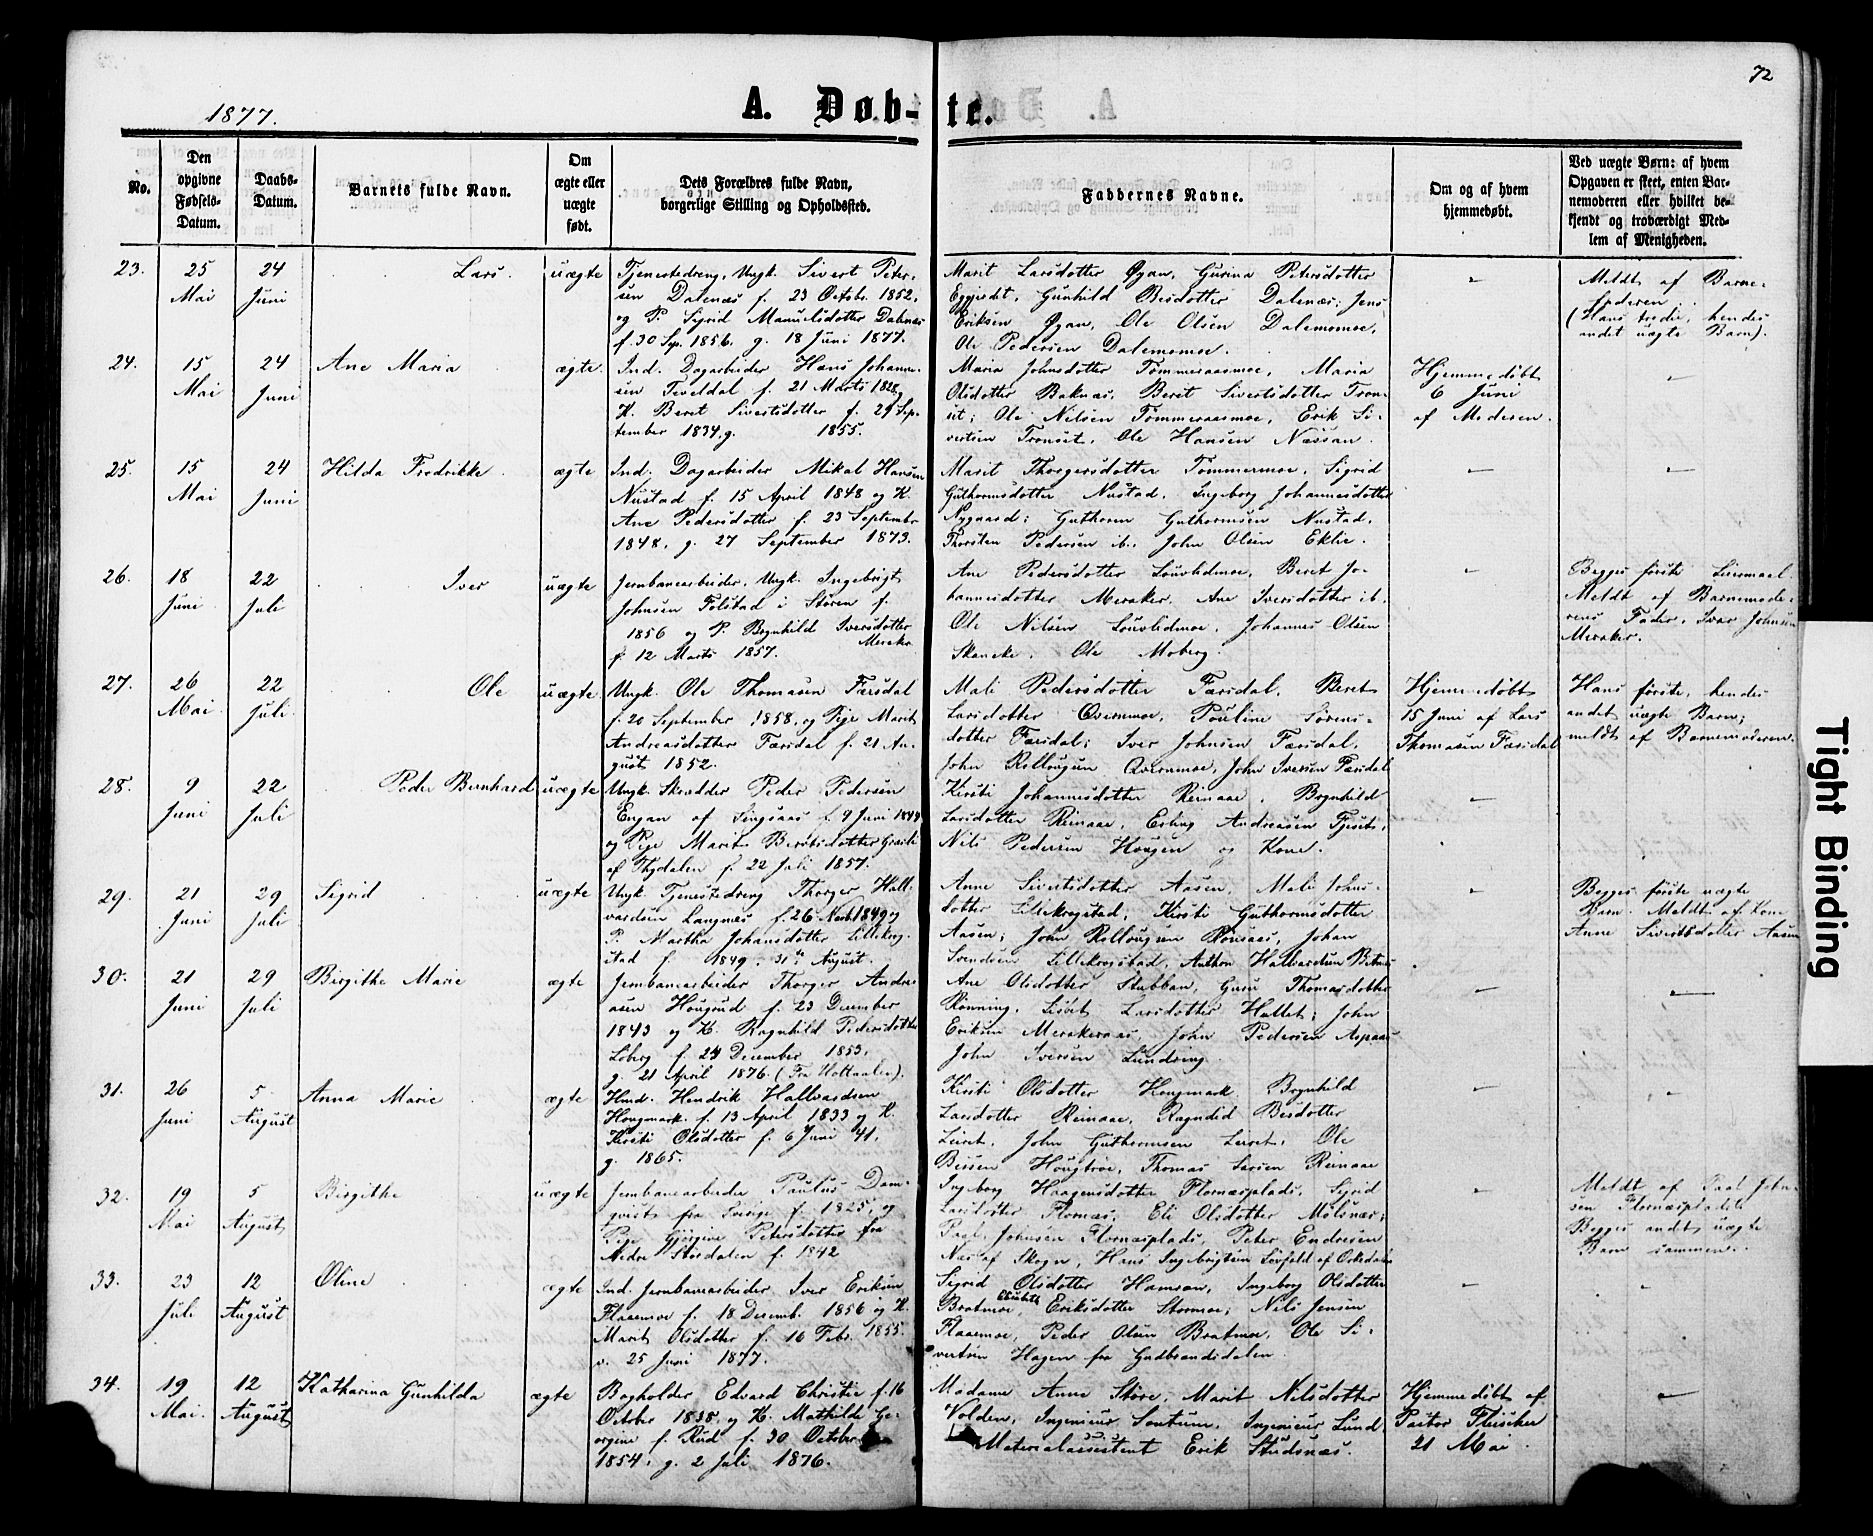 72
1877.
A. Døb-te.
No.
Den
opgivne
Fødsels-
Datum.
Daabs-
Datum.
Barnets fulde Navn.
Om
ægte eller
uægte
født.
Dets Forældres fulde Navn,
borgerlige Stilling og Opholdssted.
Faddernes Navne.
Om og af hvem
hjemmedøbt.
Ved uægte Børn: af hvem
Opgaven er skeet, enten Bar-
nemoderen eller hvilket be-
kjendt og troværdigt Med-
lem af Menigheden.
23.
25
Mai
24
Juni
Lars.
uægte
Tjenestedreng, Ungk. Sivert Peter-
sen Dalenæs f. 23 Octobr. 1852,
og P. Sigrid Manuelsdotter Dalenæs
f. 30 Sep. 1856. g. 18 Juni 1877.
Marit Larsdotter Øyan, Gurina Petersdotter
Eggisdet, Gunhild Besdotter Dalenæs; Jens
Eriksen Øyan, Ole Olsen Dalemomoe,
Ole Pedersen Dalemomoe.
Meldt af Barne-
faderen.
(Hans tredie, hendes
andet uægte Barn).
24.
15
Mai
24
Juni
Ane Maria
ægte.
Ind. Dagarbeider Hans Johann-
sen Teveldal f. 21 Marts 1828,
K. Beret Sivertsdotter f. 29 Sep-
tember 1834, g. 1855.
Maria Johnsdotter Tømmeraasmoe, Maria
Olsdotter Baknæs, Beret Sivertsdotter Tron-
set; Ole Nilsen Tømmeraasmoe, Erik Si-
vertsen Tronset, Ole Hansen Næssan.
Hjemmedøbt
6 Juni
af Moderen.
25.
15
Mai
24
Juni
Hilda Fredrikke
ægte
Ind. Dagarbeider Mikal Hansen
Nustad f. 15 April 1848 og K.
Ane Pedersdotter f. 23 Septembr
1848, g. 27 September 1873.
Marit Thorgersdotter Tømmermoe, Sigrid
Guthormsdotter Nustad, Ingeborg Johannesdotter
Nygaard; Guthorm Guthormsen Nustad,
Thorsten Pedersen ib., John Olsen Eklie.
26.
18
Juni
22
Juli
Iver
uægte
Jernbanearbeider, Ungk. Ingebrigt
Johnsen Folstad i Støren f.
1856 og P. Brynhild Iversdotter
f. 12 Marts 1857. Meraker
Ane Pedersdotter Louvlidmoe, Beret Jo-
hannesdotter Meraker, Ane Iversdotter ib.
Ole Nilsen Louvlidmoe, Johannes Olsen
Skancke, Ole Moberg.
Begges første Leiermaal.
Meldt af Barnemode-
rens Fader, Ivar Johnsen
Meraker.
27.
26
Mai
22
Juli
Ole
uægte
Ungk. Ole Thomasen Færsdal
f. 20 September 1858, og Pige Marit
Andreasdotter Færsdal f. 21 Au-
gust 1852.
Mali Pedersdotter Færsdal, Beret
Larsdotter Qvernmoe, Pouline Sørens-
dotter Færsdal; Iver Johnsen Færsdal,
John Rollougsen Qvernmoe, John Iversen Færsdal
Hjemmedøbt
15 Juni af Lars
Thomasen Færsdal
Hans første, hendes
andet uægte Barn;
meldt af Barnemoderen.
28.
9
Juni
22
Juli
Peder Bernhard
uægte
Ungk. Skrædder Peder Pedersen
Engan af Singsaas f. 9 Juni 1849
og Pige Marit Bersvtsdotter Græsli
af Thydalen f. 22 Juli 1857.
Kirsti Johannesdotter Reinaae, Brynhild
Larsdotter Reinaae, Esling Andreasen Fjeset,
Nils Pedersen Hougen og Kone.
29.
21
Juni
29
Juli
Sigrid
uægte
Ungk. Tjenestedreng Thorger Hall-
vardsen Langnæs f. 26 Novbr 1849 og
P. Martha Johansdotter Lillekrog-
stad f. 1849. 31te August.
Anne Sivertsdotter Aasen, Mali Johns-
dotter Lillekrogstad, Kirsti Guthormsdotter
Aasen; John Rollougsen Rønsaas, Johan
Svendsen Lillekrogstad, Anthon Hallvardsen Bitnæs
Begges første uægte
Barn. Meldt af Kone
Anne Sivertsdotter Aasen
30.
21
Juni
29
Juli
Birgithe Marie
ægte
Jernbanearbeider Thorger Andre-
asen Hougsud f. 23 December
1843 og K. Ragnhild Pedersdotter
Loberg f. 24 December 1853.
g. 21 April 1876. (Fra Holtaalen).
Ane Olsdotter Stubban, Guru Thomasdotter
Rønning, Lisbet Larsdotter Hallet; John
Eriksen Merakeraas, John Pedersen Aspaas
John Iversen Lundring.
31.
26
Juni
5
August
Anna Marie
ægte
Hmd. Hendrik Hallvardsen
Hougmark f. 13 April 1833 og K.
Kirsti Olsdotter f. 6 Juni 41,
g. 1865.
Kirsti Olsdotter Hougmark, Brynhild
Larsdotter Reinaae, Ragndid Besdotter
Leiret, John Guthormsen Leiret, Ole
Bessen Hougtrøe, Thomas Larsen Reinaae
32.
19
Mai
5
August
Birgithe
uægte
Jernbanearbeider Paulus Dam-
qvist fra Sverige f. 1825, og
Pige Gjørgine Petersdotter fra
Nedre Størdalen f. 1842
Ingeborg Haagensdotter Flornæsplads, Sigrid
Larsdotter Flornæs, Eli Olsdotter Molsnæs;
Paal Johnsen Flornæsplads, Peter Endresen
Næs af Skogn, Hans Ingebrigtsen Løvfold af Orkedalen
Meldt af Paal John-
sen Flornæspladds
Begges andet uægte
Barn sammen.
33.
23
Juli
12
August
Oline
ægte
Ind. Jernbanearbeider Iver Eriksen
Flaaemoe f. 18 Decemb. 1856 og K.
Marit Olsdotter f. 16 Febr. 1855.
v. 25 Juni 1877.
Sigrid Olsdotter Hamsan, Ingeborg Olsdotter
Bratmoe, Elisabeth Eriksdotter Stormoe; Nils Jensen
Flaaemoe, Peder Olsen Bratmoe, Ole Si-
vertsen Hagen fra Gudbrandsdalen
34.
19
Mai.
12
August
Katharina Gunhilda
ægte
Bogholder Edvard Christie f. 16
October 1838, og K. Mathilde Ge-
orgine f. Rud f. 30 October
1854, g. 2 Juli 1876.
Madame Anne Støre, Marit Nilsdotter
Volden, Ingeniør Sontum, Ingeniør Lund
Materialassistent Erik Studsnæs.
Hjemmedøbt af
Pastor Fleischer
21 Mai.
Tight Binding